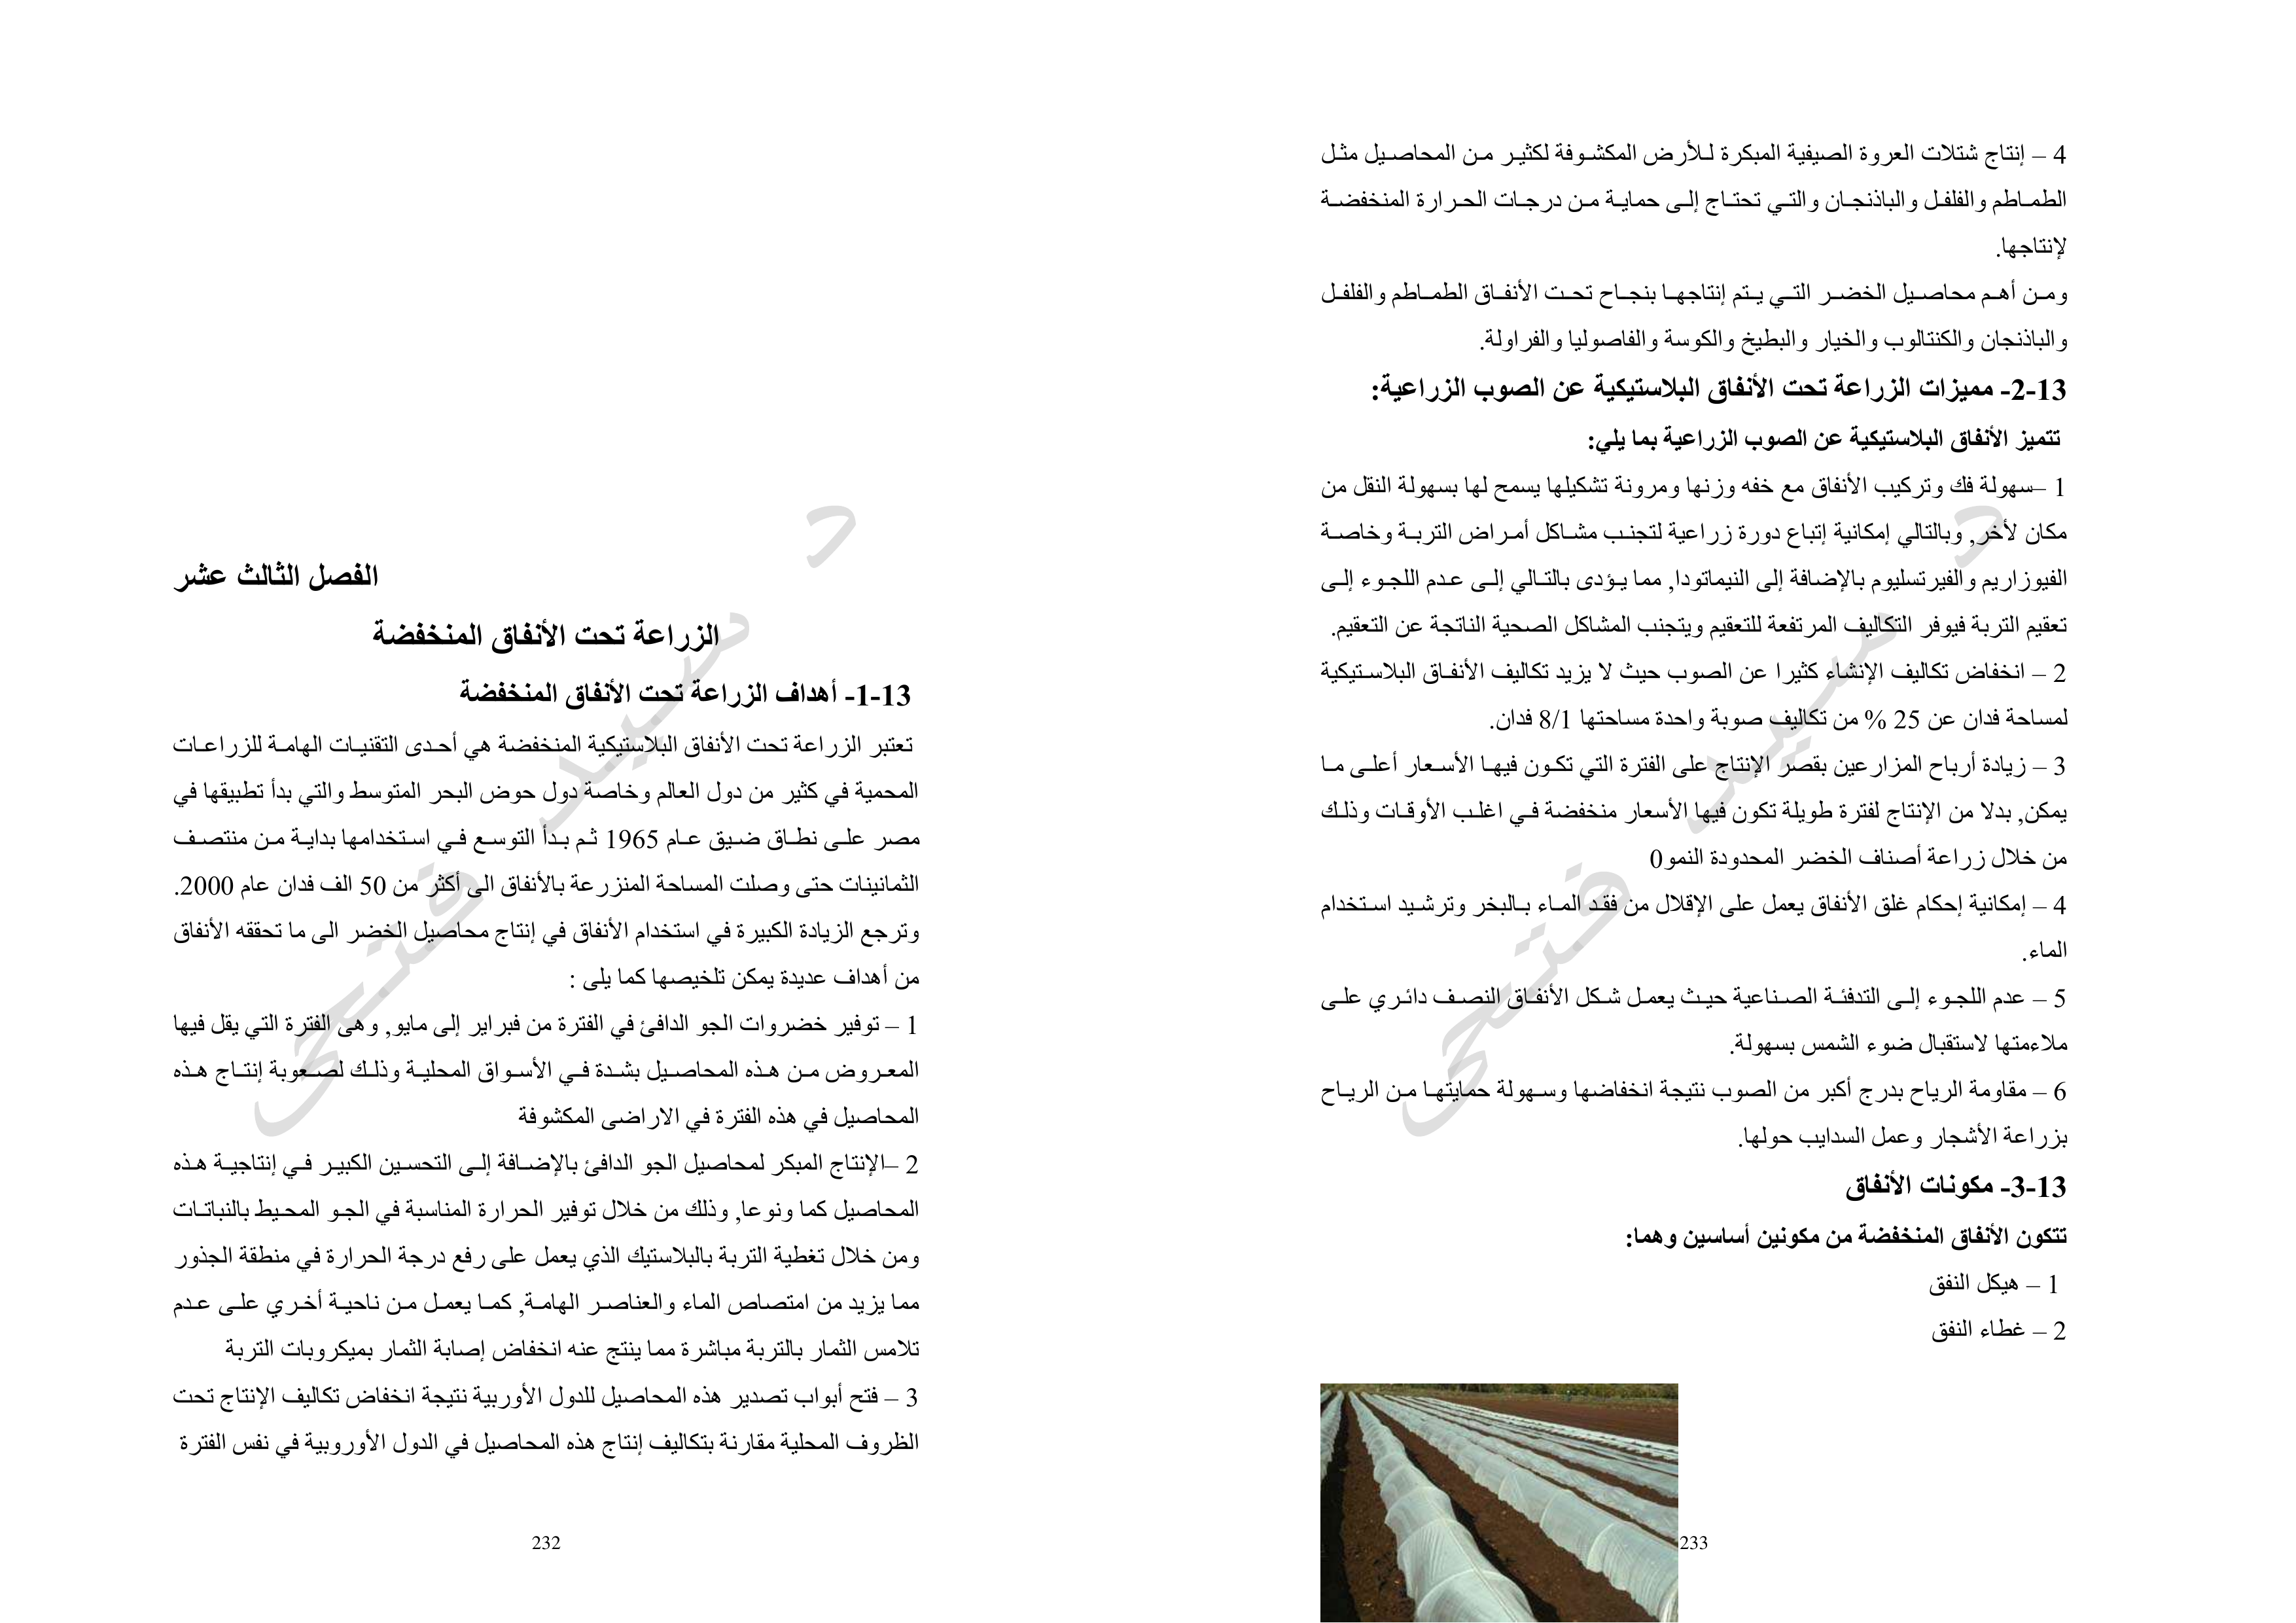 الفصل الثالث عشر
الزراعة تحت الأنفاق المنخفضة
13-1- أهداف الزراعة تحت الأنفاق المنخفضة
تعتبر الزراعة تحت الأنفاق البلاستيكية المنخفضة هي أحدى التقنيات الهامة للزراعات
المحمية في كثير من دول العالم وخاصة دول حوض البحر المتوسط والتي بدأ تطبيقها في
مصر على نطاق ضيق عام 1965 ثم بدأ التوسع في استخدامها بداية من منتصف
الثمانينات حتى وصلت المساحة المنزرعة بالأنفاق الى أكثر من 50 الف فدان عام 2000.
وترجع الزيادة الكبيرة في استخدام الأنفاق في إنتاج محاصيل الخضر الى ما تحققه الأنفاق
من أهداف عديدة يمكن تلخيصها كما يلى :
1 – توفير خضروات الجو الدافئ في الفترة من فبراير إلى مايو, وهى الفترة التي يقل فيها
المعروض من هذه المحاصيل بشدة في الأسواق المحلية وذلك لصعوبة إنتاج هذه
المحاصيل في هذه الفترة في الاراضى المكشوفة
2 –الإنتاج المبكر لمحاصيل الجو الدافئ بالإضافة إلى التحسين الكبير في إنتاجية هذه
المحاصيل كما ونوعا, وذلك من خلال توفير الحرارة المناسبة في الجو المحيط بالنباتات
ومن خلال تغطية التربة بالبلاستيك الذي يعمل على رفع درجة الحرارة في منطقة الجذور
مما يزيد من امتصاص الماء والعناصر الهامة, كما يعمل من ناحية أخري على عدم
تلامس الثمار بالتربة مباشرة مما ينتج عنه انخفاض إصابة الثمار بميكروبات التربة
3 – فتح أبواب تصدير هذه المحاصيل للدول الأوربية نتيجة انخفاض تكاليف الإنتاج تحت
الظروف المحلية مقارنة بتكاليف إنتاج هذه المحاصيل في الدول الأوروبية في نفس الفترة
232
د سيد فتحى
4 – إنتاج شتلات العروة الصيفية المبكرة للأرض المكشوفة لكثير من المحاصيل مثل
الطماطم والفلفل والباذنجان والتي تحتاج إلى حماية من درجات الحرارة المنخفضة
لإنتاجها.
ومن أهم محاصيل الخضر التي يتم إنتاجها بنجاح تحت الأنفاق الطماطم والفلفل
والباذنجان والكنتالوب والخيار والبطيخ والكوسة والفاصوليا والفراولة.
13-2- مميزات الزراعة تحت الأنفاق البلاستيكية عن الصوب الزراعية:
تتميز الأنفاق البلاستيكية عن الصوب الزراعية بما يلي:
1 –سهولة فك وتركيب الأنفاق مع خفه وزنها ومرونة تشكيلها يسمح لها بسهولة النقل من
مكان لأخر, وبالتالي إمكانية إتباع دورة زراعية لتجنب مشاكل أمراض التربة وخاصة
الفيوزاريم والفيرتسليوم بالإضافة إلى النيماتودا, مما يؤدى بالتالي إلى عدم اللجوء إلى
تعقيم التربة فيوفر التكاليف المرتفعة للتعقيم ويتجنب المشاكل الصحية الناتجة عن التعقيم.
2 – انخفاض تكاليف الإنشاء كثيرا عن الصوب حيث لا يزيد تكاليف الأنفاق البلاستيكية
لمساحة فدان عن 25 % من تكاليف صوبة واحدة مساحتها 8/1 فدان.
3 – زيادة أرباح المزارعين بقصر الإنتاج على الفترة التي تكون فيها الأسعار أعلى ما
يمكن, بدلا من الإنتاج لفترة طويلة تكون فيها الأسعار منخفضة في اغلب الأوقات وذلك
من خلال زراعة أصناف الخضر المحدودة النمو0
4 – إمكانية إحكام غلق الأنفاق يعمل على الإقلال من فقد الماء بالبخر وترشيد استخدام
الماء.
5 – عدم اللجوء إلى التدفئة الصناعية حيث يعمل شكل الأنفاق النصف دائري على
ملاءمتها لاستقبال ضوء الشمس بسهولة.
6 – مقاومة الرياح بدرج أكبر من الصوب نتيجة انخفاضها وسهولة حمايتها من الرياح
بزراعة الأشجار وعمل السدايب حولها.
13-3- مكونات الأنفاق
تتكون الأنفاق المنخفضة من مكونين أساسين وهما:
1 – هيكل النفق
2 – غطاء النفق
233
د سيد فتحى